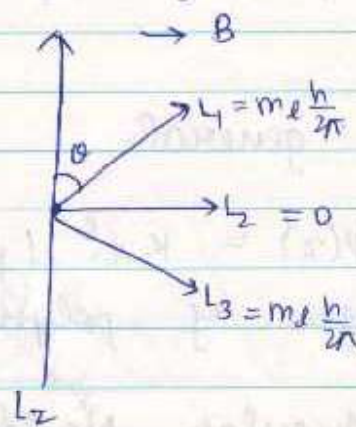 B
θ
L₁ = mₗ h/2π
L₂ = 0
L₃ = mₗ h/2π
L_z